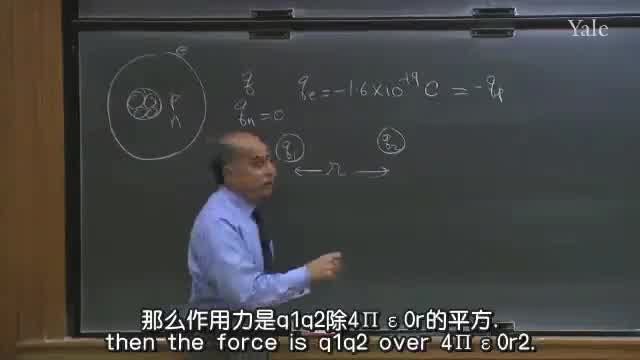 Yale
e
q   q_e = -1.6 × 10^-19 C = -q_p
P
n   q_n = 0
q_1   q_2
← r →
那么作用力是q1q2除4Π ε0r的平方.
then the force is q1q2 over 4Π ε0r2.